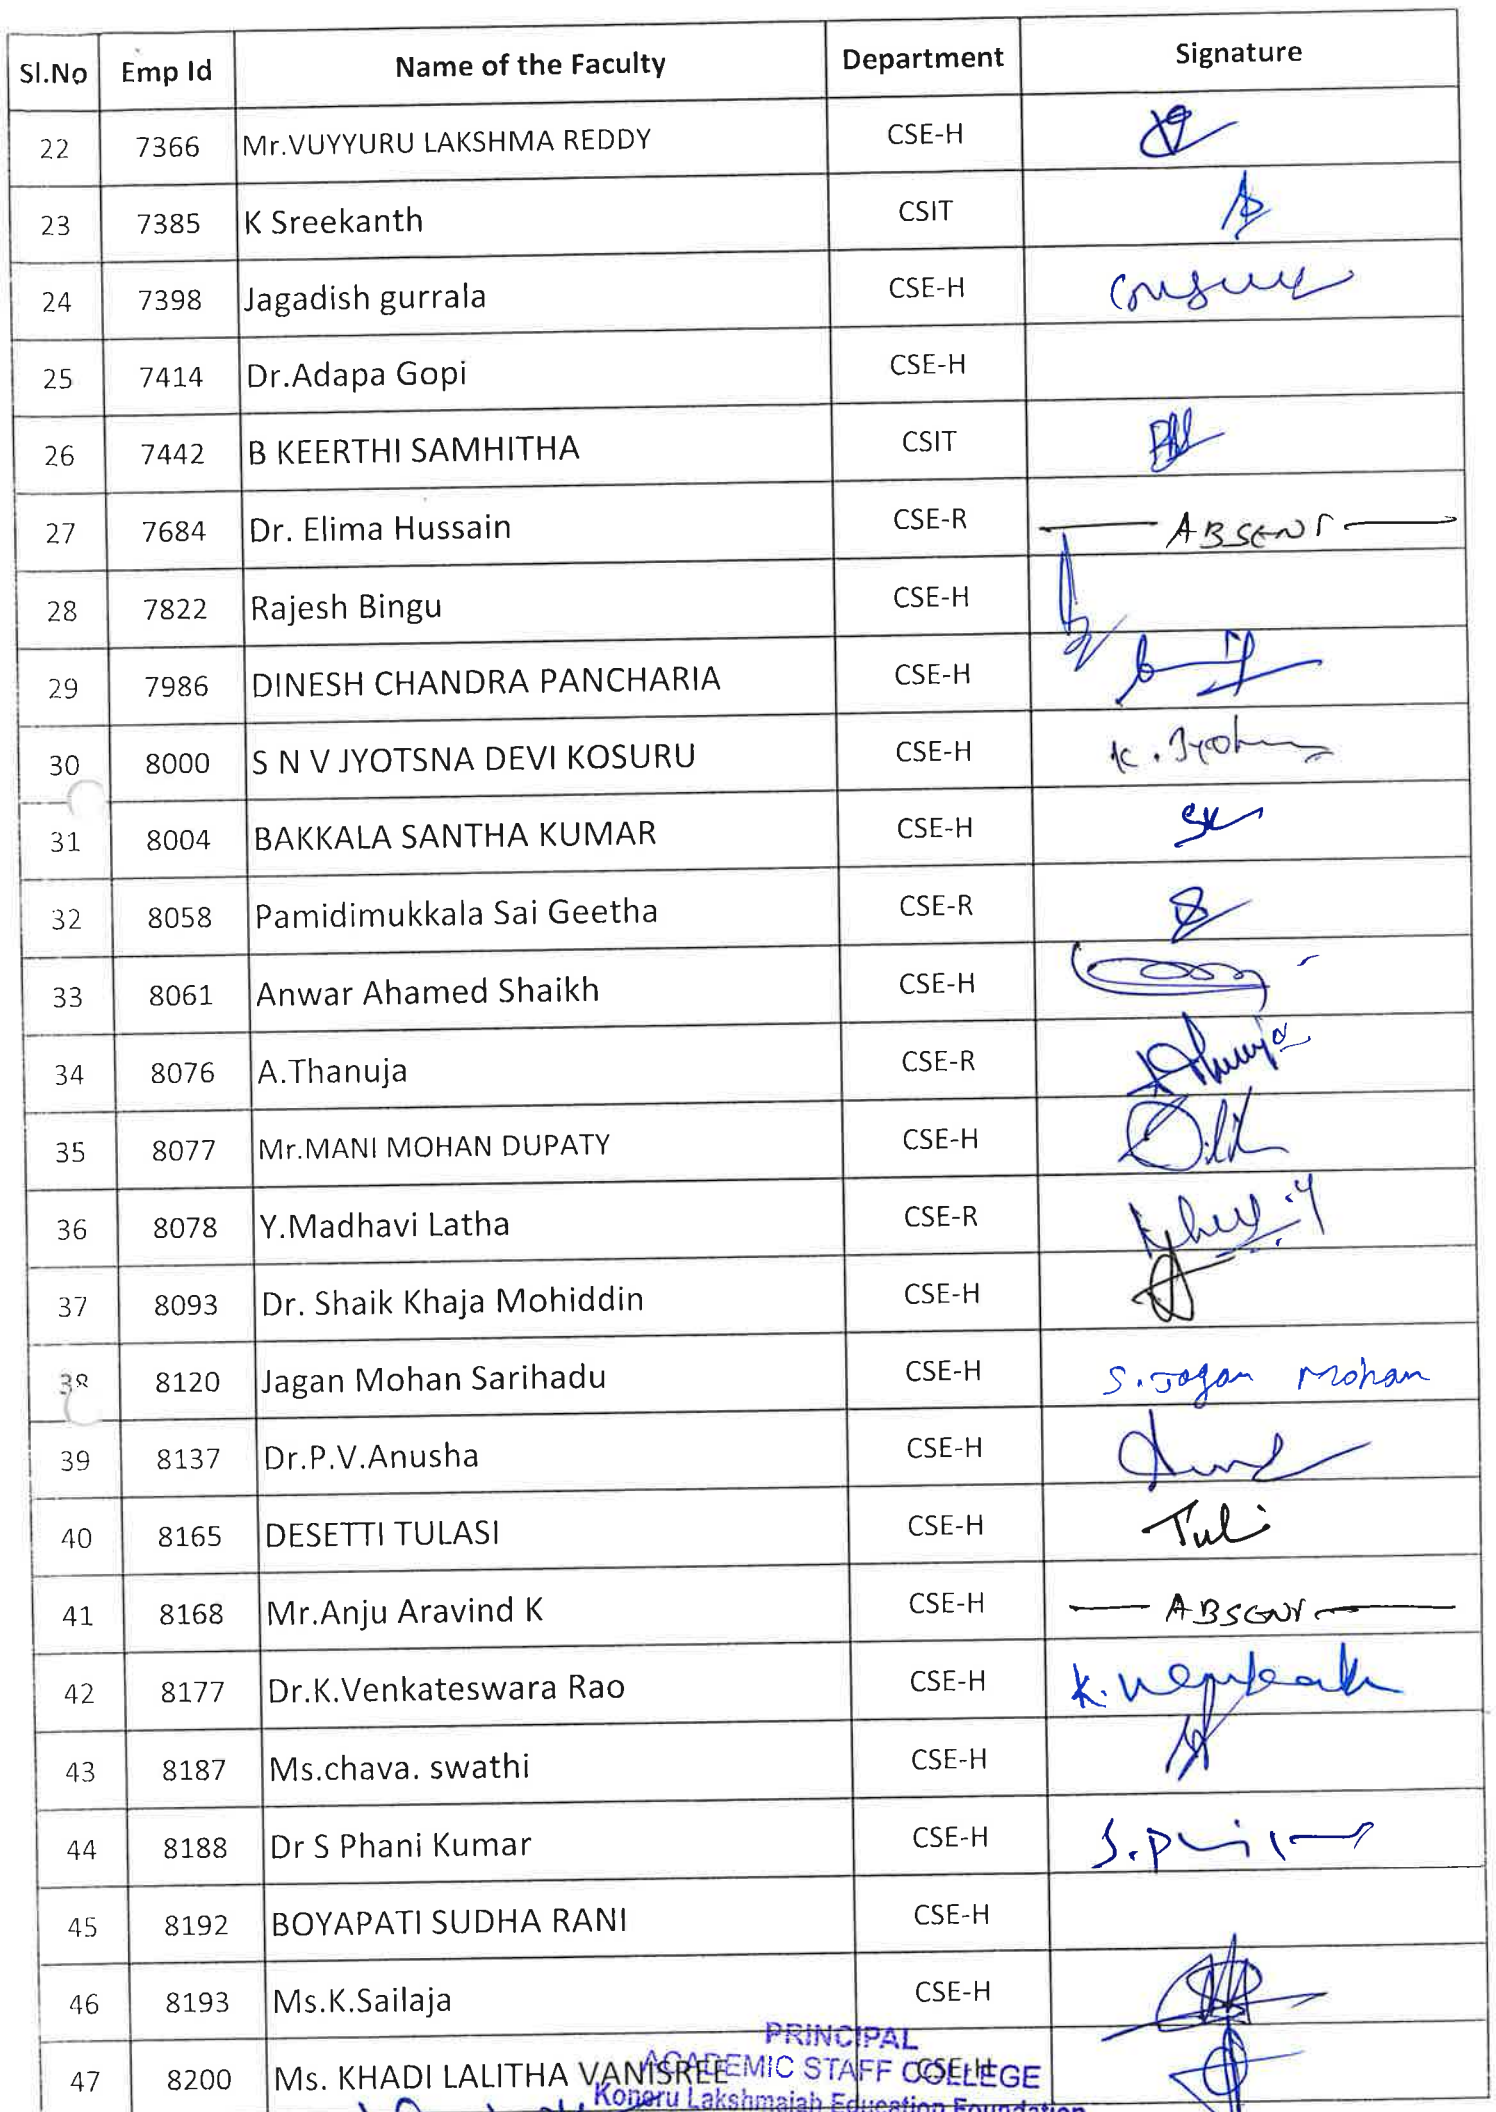 Sl.No Emp Id Name of the Faculty Department Signature
22 7366 Mr.VUYYURU LAKSHMA REDDY CSE-H
23 7385 K Sreekanth CSIT
24 7398 Jagadish gurrala CSE-H
25 7414 Dr.Adapa Gopi CSE-H
26 7442 B KEERTHI SAMHITHA CSIT
27 7684 Dr. Elima Hussain CSE-R ABSENT
28 7822 Rajesh Bingu CSE-H
29 7986 DINESH CHANDRA PANCHARIA CSE-H
30 8000 S N V JYOTSNA DEVI KOSURU CSE-H
31 8004 BAKKALA SANTHA KUMAR CSE-H
32 8058 Pamidimukkala Sai Geetha CSE-R
33 8061 Anwar Ahamed Shaikh CSE-H
34 8076 A.Thanuja CSE-R
35 8077 Mr.MANI MOHAN DUPATY CSE-H
36 8078 Y.Madhavi Latha CSE-R
37 8093 Dr. Shaik Khaja Mohiddin CSE-H
38 8120 Jagan Mohan Sarihadu CSE-H S. Jagan Mohan
39 8137 Dr.P.V.Anusha CSE-H
40 8165 DESETTI TULASI CSE-H
41 8168 Mr.Anju Aravind K CSE-H ABSENT
42 8177 Dr.K.Venkateswara Rao CSE-H
43 8187 Ms.chava. swathi CSE-H
44 8188 Dr S Phani Kumar CSE-H
45 8192 BOYAPATI SUDHA RANI CSE-H
46 8193 Ms.K.Sailaja CSE-H
47 8200 Ms. KHADI LALITHA VANISREE CSE-H
PRINCIPAL
ACADEMIC STAFF COLLEGE
Koneru Lakshmaiah Education Foundation